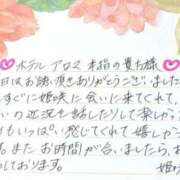 ホテル アロス 本指の貴方様
日はお誘い頂きありがとうございまし
すぐに姫咲に会いに来てくれて、
いの近況を話したりして楽しかっ
もいっぱい感じてくれて嬉しか
す。またお時間が合いましたら、お
しております。
姫